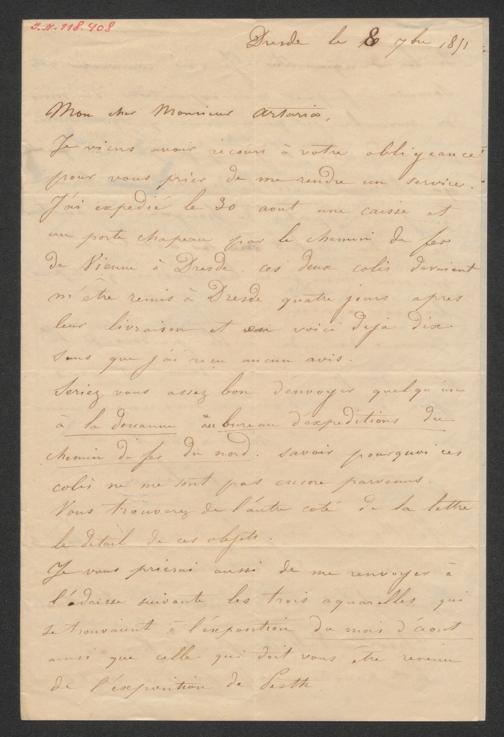 I.N. 118.408
Dresde le 8 7bre 1851
Mon cher Monsieur Artaria,
Je viens avoir recours à votre obligeance
pour vous prier de me rendre un service.
J'ai expedié le 30 aout une caisse et
un porte chapeau par le chemin de fer
de Vienne à Dresde. ces deux colis devraient
m'être remis à Dresde quatre jours apres
leur livraison et en voici dejà dix
sans que j'ai reçu aucun avis.
Seriez vous assez bon d'envoyer quelqu'un
à la douanne au bureau d'expeditions du
chemin de fer du nord. savoir pourquoi ces
colis ne me sont pas encore parvenus.
Vous trouverez de l'autre coté de la lettre
le detail de ces objets.
Je vous prierai aussi de me renvoyer à
l'adresse suivante les trois aquarelles qui
se trouvaient à l'exposition du mois d'aout
ainsi que celle qui doit vous être revenu
de l'exposition de Pesth